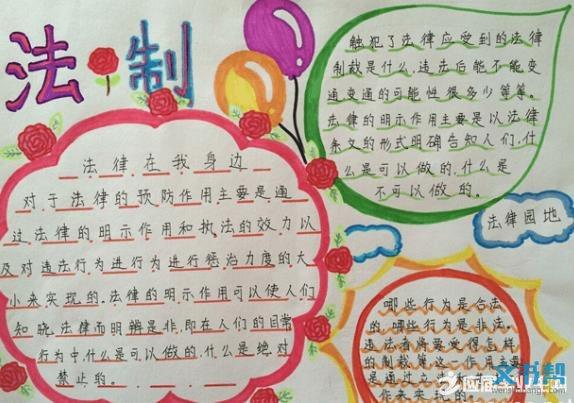 法制
法律在我身边
对于法律的预防作用主要是通
过法律的明示作用和执法的效力以
及对违法行为进行为进行惩治力度的大
小来实现的。法律的明示作用可以使人们
知晓法律而明辨是非,即在人们的日常
行为中什么是可以做的,什么是绝对
禁止的。
触犯了法律应受到的法律
制裁是什么,违法后能不能变
通变通的可能性很多少等等。
法律的明示作用主要是以法律
条文的形式明确告知人们,什
么是可以做的,什么是
不可以做的。
法律园地
哪些行为是合法
的,哪些行为是非法,
违法者将要受得怎样
的制裁等这一作用主要
是通过立法
作来来